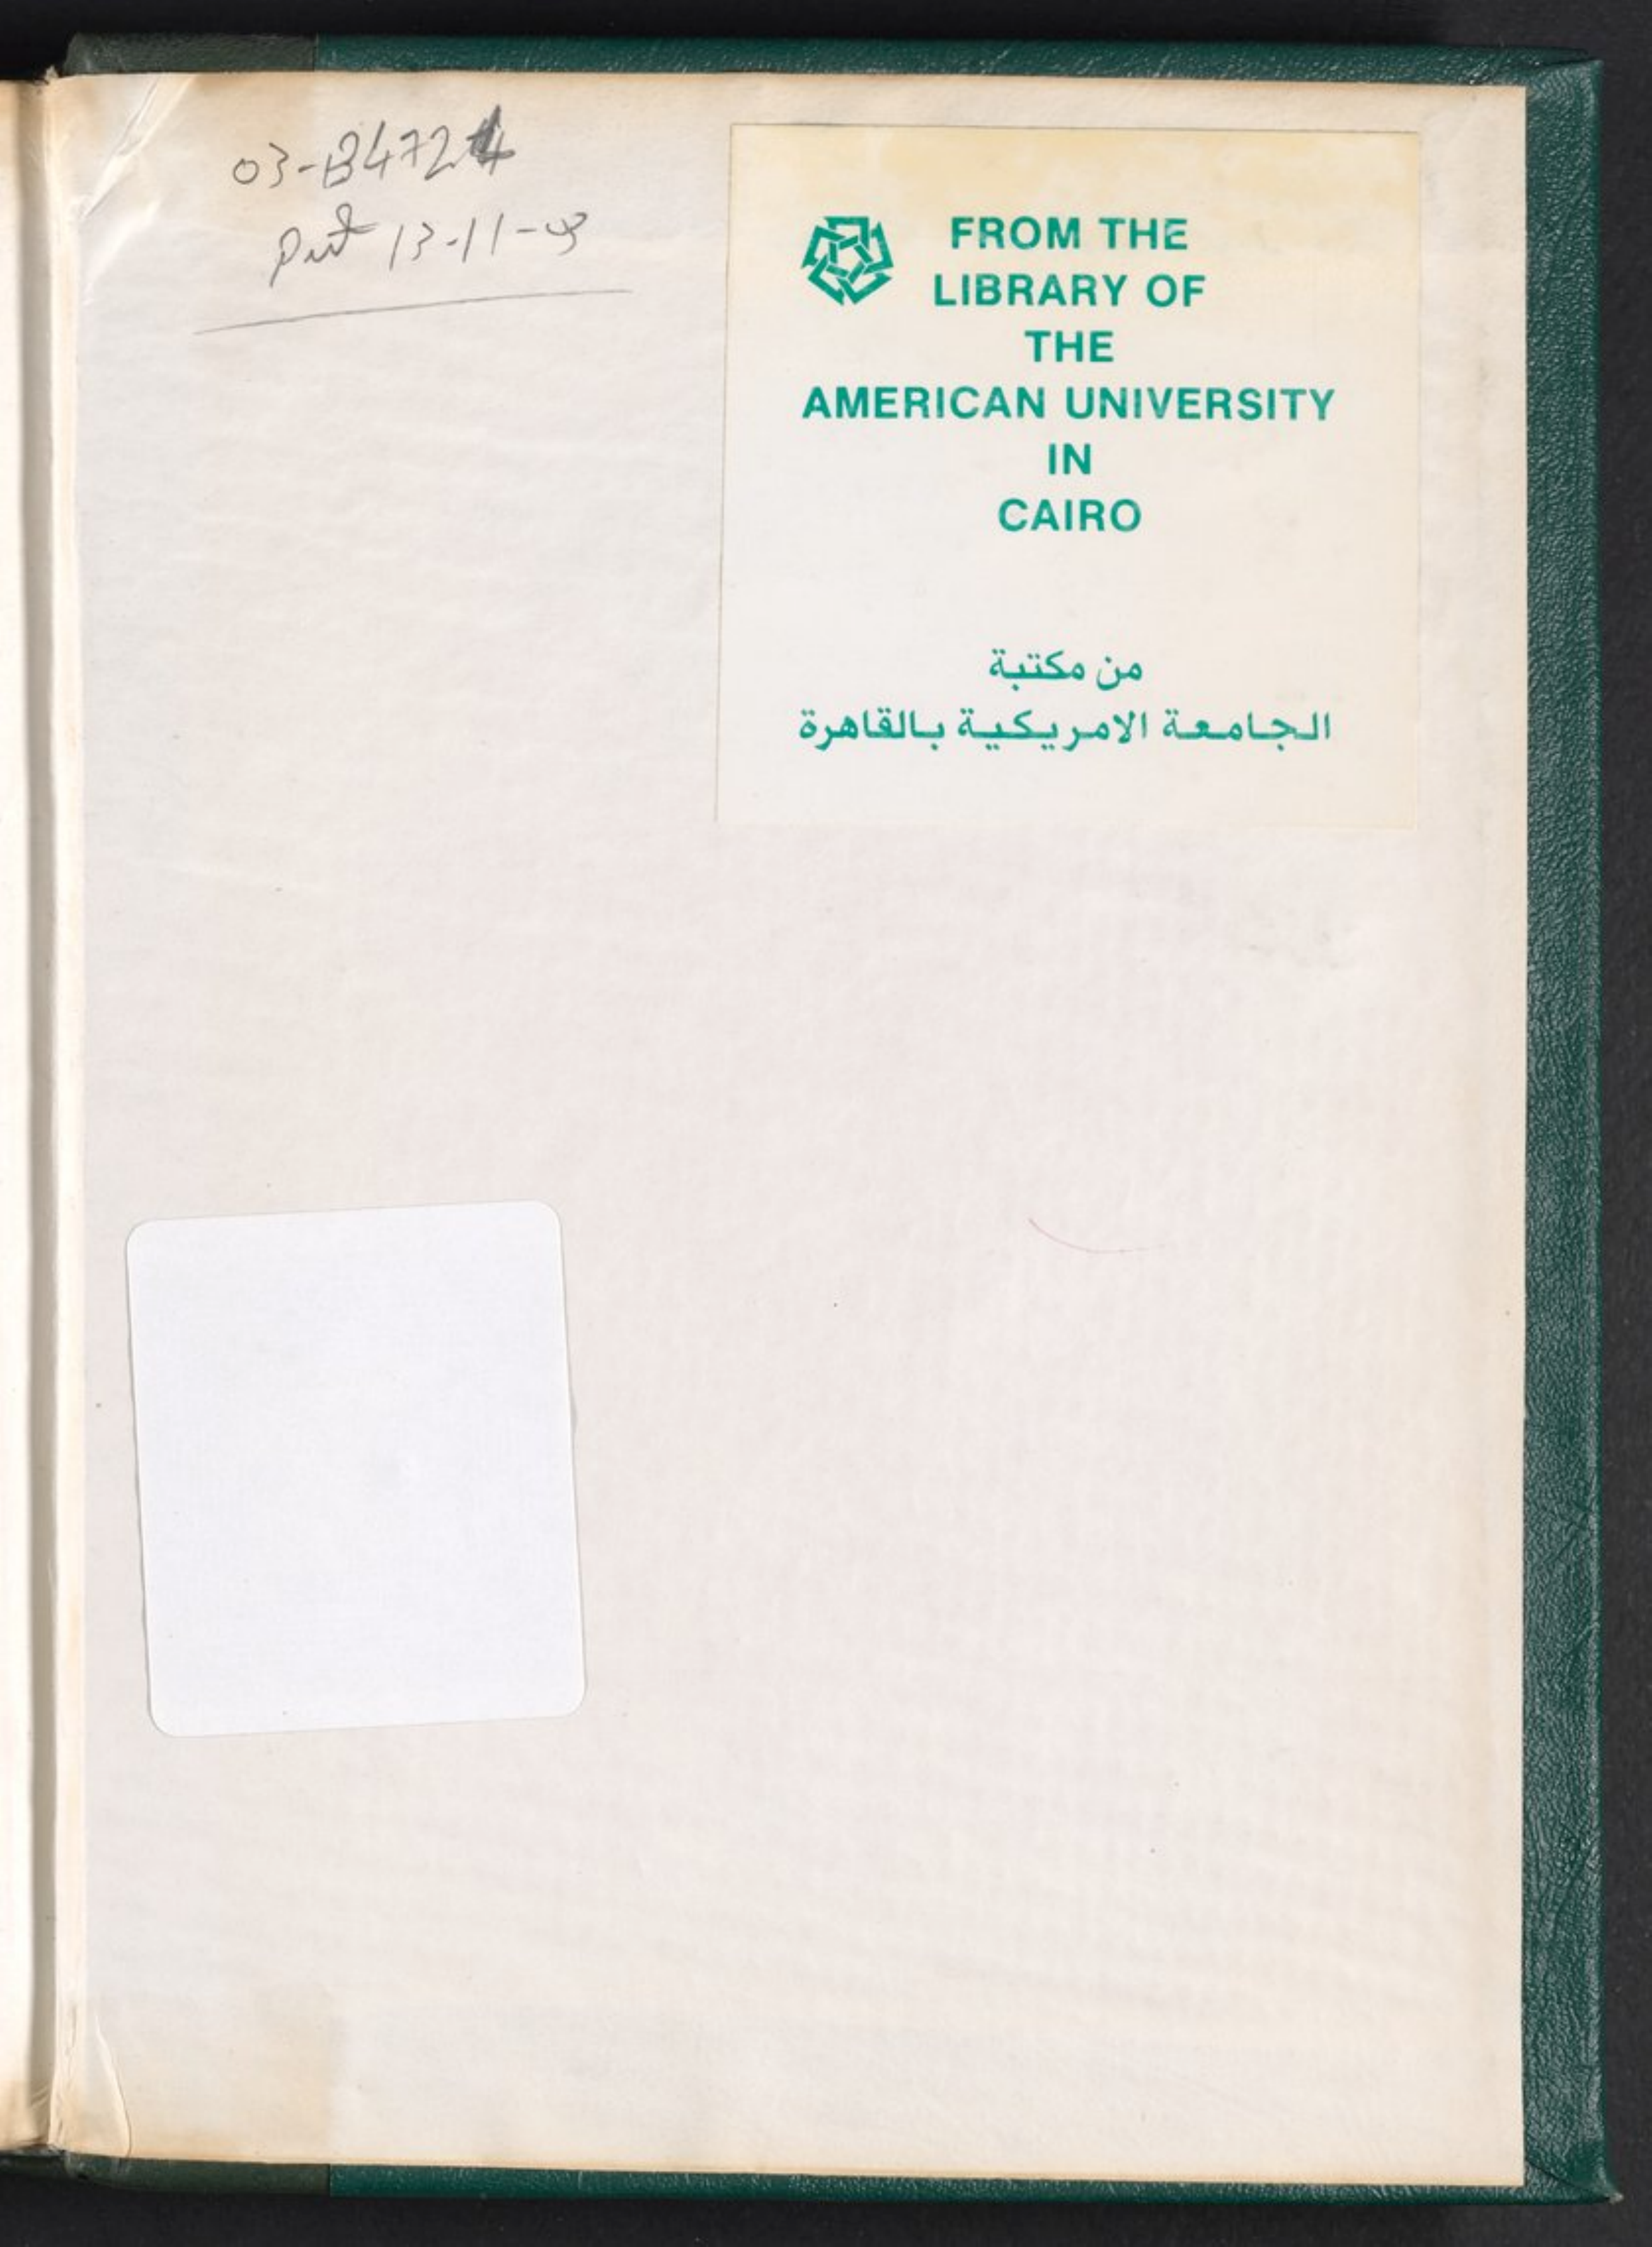 03-B4724
13-11-03
FROM THE
LIBRARY OF
THE
AMERICAN UNIVERSITY
IN
CAIRO
من مكتبة
الجامعة الامريكية بالقاهرة